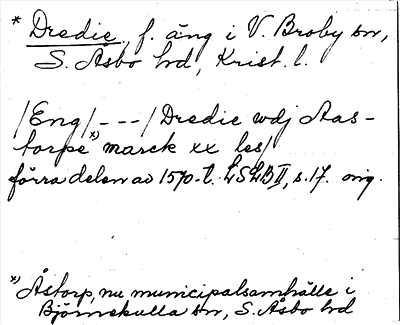 * Dredie, f. äng i V. Broby sn,
S. Åsbo hd, Krist. l.
/Eng/---/Dredie wdj Aas-
torpe *) marck xx les/
förra delen av 1570-t. LSLB II, s. 17. orig.
*) Åstorp, nu municipalsamhälle i
Björnekulla sn, S. Åsbo hd